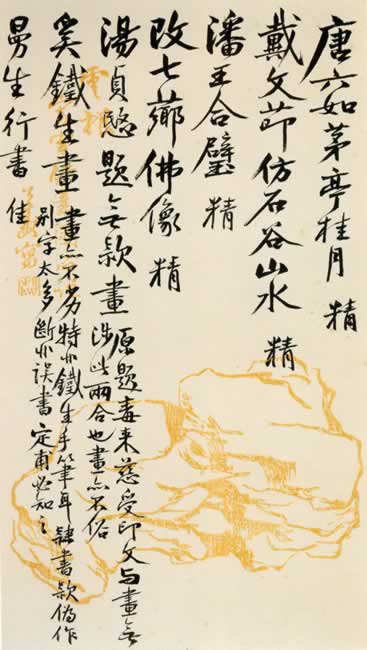 唐六如茅亭桂月 精
戴文節仿石谷山水 精
潘王合璧 精
改七薌佛像 精
湯貞愍題無款畫
原題毒來慈受印文与畫無
涉些兩合也畫亦不俗
奚鐵生畫
畫亦不劣特非鐵生手筆耳隸書款偽作
別字太多斷非誤書定甫必知之
曼生行書 佳